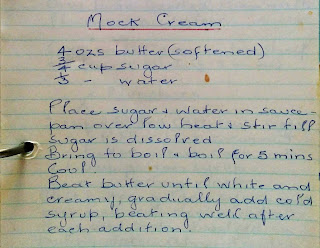 Mock Cream
4 ozs butter (softened)
3/4 cup sugar
1/3 - water
Place sugar & water in sauce-
pan over low heat & stir till
sugar is dissolved
Bring to boil & boil for 5 mins
Cool.
Beat butter until white and
creamy, gradually add cold
syrup, beating well after
each addition.